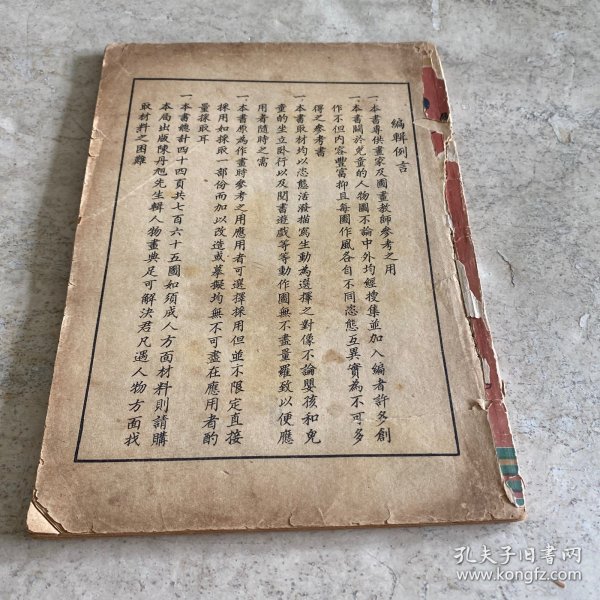 編輯例言
一本書專供畫家及圖畫教師參考之用
一本書關於兒童的人物圖不論中外均經搜集並加入編者許多創
作不但內容豐富抑且每圖作風各自不同恣態互異實為不可多
得之參考書
一本書取材均以恣態活潑描寫生動為選擇之對像不論嬰孩和兒
童的坐立卧行以及閱書遊戲等等動作圖無不盡量羅致以便應
用者隨時之需
一本書原為作畫時參考之用應用者可選擇採用但並不限定直接
採用如採取一部份而加以改造或摹擬均無不可盡在應用者酌
量採取耳
一本書總計四十四頁共七百六十五圖如須成人方面材料則請購
本局出版陳丹旭先生輯人物畫典足可解決君凡遇人物方面找
取材料之困難
孔夫子旧书网
www.kongfz.com